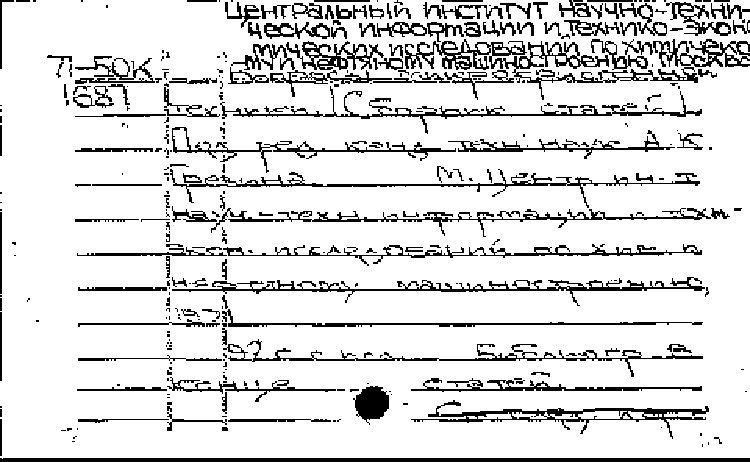 Центральный институт научно-техни-
ческой информации и технико-эконо
мических исследований по химическо
му и нефтяному машиностроению. Москва
71-50К
1687 техники. [Сборник статей]
Под ред. канд. техн. наук А. К.
Грезина М., Центр. ин-т
науч.-техн. информации и техн.-
экон. исследований по хим. и
нефтяному машиностроению,
1971
97 с. с илл. Библиогр. в
конце статей.